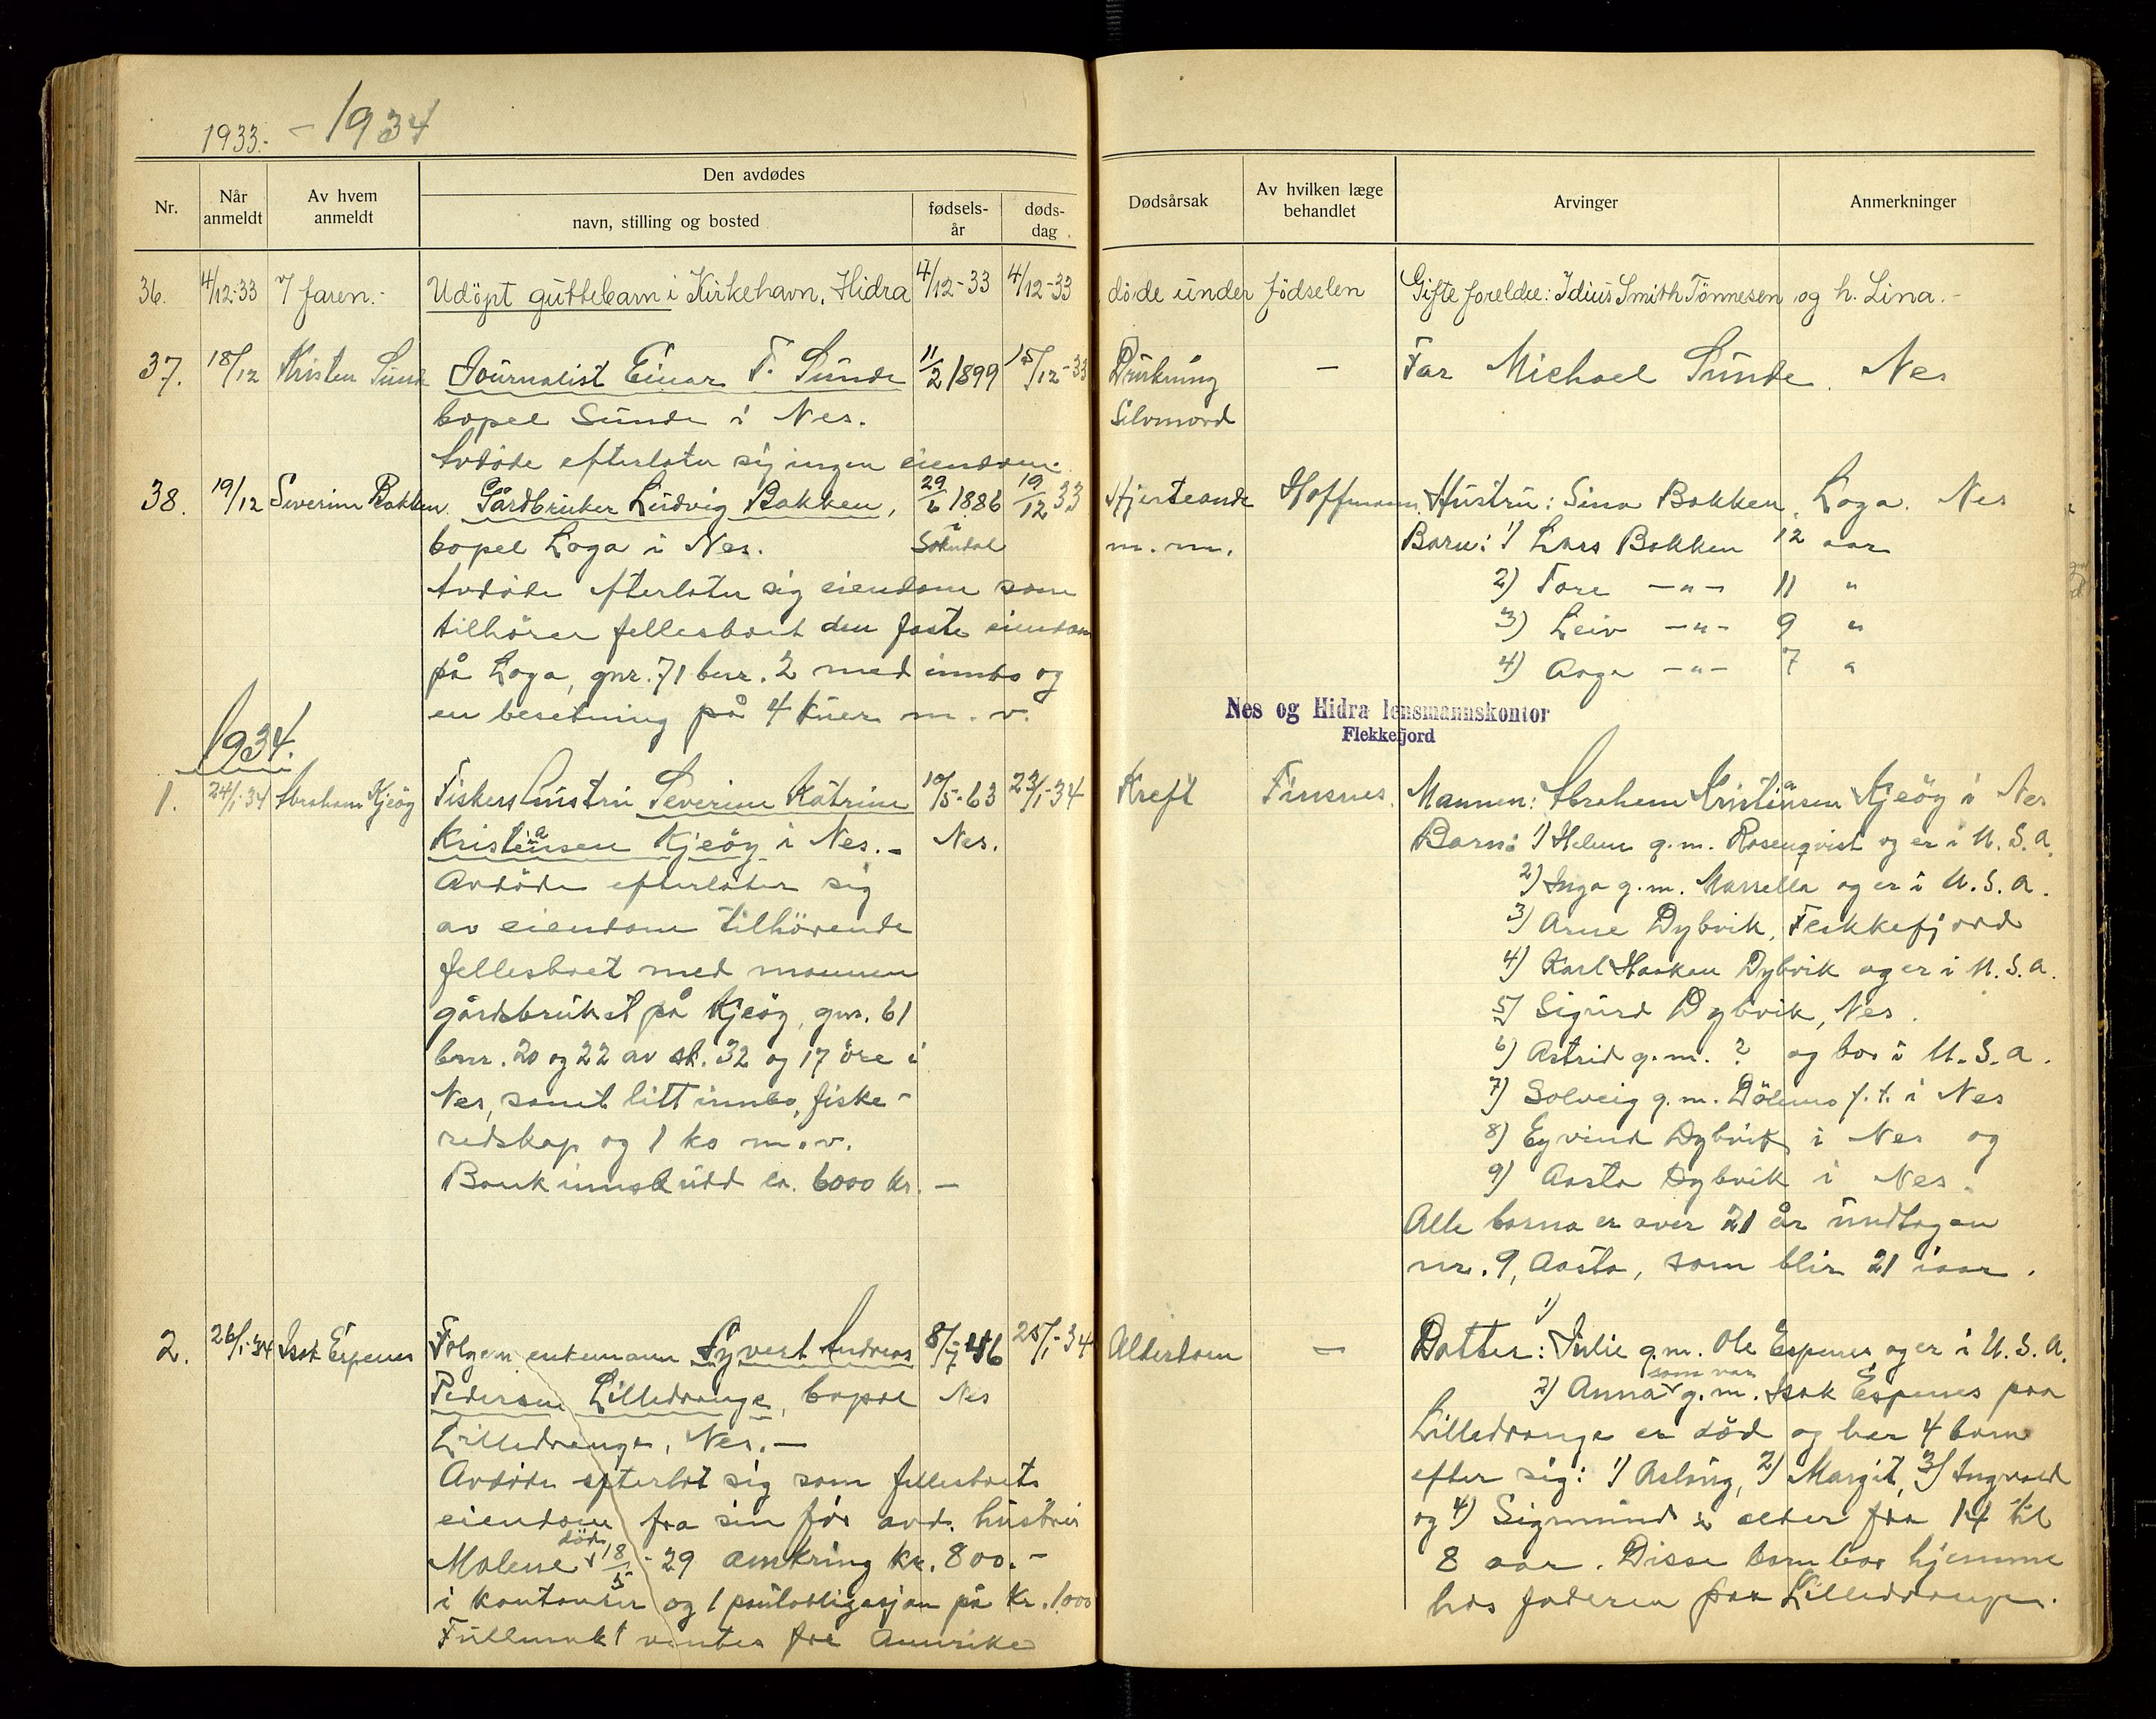 1933.- - 1934
Den avdødes
Nr.
Når anmeldt
Av hvem anmeldt
navn, stilling og bosted
fødsels-år
døds-dag
Dødsårsak
Av hvilken læge behandlet
Arvinger
Anmerkninger
36. 4/12-33 faren.- Udöpt guttebarn i Kirkehavn, Hidra 4/12-33 4/12-33 döde under födselen Gifte foreldre: Idius Smith Tönnesen og h. Lina.-
37. 18/12 Kristen Sunde Journalist Einar T. Sunde 11/2 1899 15/12-33 Drukning - Far Michael Sunde. Nes
bopel Sunde i Nes. Selvmord
Avdöde efterlater sig ingen eiendom.
38. 19/12 Severine Bakken Gårdbruker Ludvig Bakken, 29/6 1886 19/12 33 Hjerteonde Hoffmann. Hustru: Sina Bakken, Loga. Nes
bopel Loga i Nes. i Sokndal m.m. Barn: 1) Lars Bakken 12 aar
Avdöde efterlater sig eiendom som 2) Tore -"- 11 "
tilhörer fellesboet den faste eiendom 3) Leiv -"- 9 "
på Loga, gnr. 71 bnr. 2 med innbo og 4) Aage -"- 7 "
en besetning på 4 kuer m. v.
Nes og Hidra lensmannskontor
Flekkefjord
1934.
1. 24/1-34 Abraham Kjeöy Fiskers hustru Severine Katrine 10/5-63 23/1-34 Kreft Finsnes. Mannen: Abraham Kristiansen Kjeöy i Nes
Kristiansen Kjeöy i Nes.- Nes. Barn: 1) Helene g.m. Rosenqvist og er i U.S.A.
Avdöde efterlater sig 2) Inga g.m. Marsella og er i U.S.A.
av eiendom tilhörende 3) Arne Dybvik, Flekkefjord
fellesboet med mannen 4) Karl Haakon Dybvik og er i U.S.A.
gårdsbruket på Kjeöy, gnr. 61 5) Sigurd Dybvik, Nes.
bnr. 20 og 22 av sk. 32 og 17 öre i 6) Astrid g.m. ? og bor i U.S.A.
Nes, samt litt innbo, fiske- 7) Solveig g.m. f.t. i Nes
redskap og 1 ko m.v. 8) Eyvind Dybvik i Nes og
Bankinnskudd ca. 6000 kr.- 9) Aasta Dybvik i Nes.
Alle barna er over 21 år undtagen
nr. 9, Aasta, som blir 21 iaar.
2. 26/1-34 Isak Espenes Folgem. enkemann Syvert Andreas 8/7-56 25/1-34 Alderdom - Datter: 1) Julie g.m. Ole Espenes og er i U.S.A.
Pedersen Lilledrange, bopel Nes 2) Anna som var g.m. Isak Espenes paa
Lilledrange, Nes.- Lilledrange er död og har 4 barn
Avdöde efterlot sig som fellesboets efter sig: 1) Aslaug, 2) Margit, 3) Ingvald
eiendom fra sin för avd. hustru og 4) Sigmund i alder fra 14 til
Malene död 18/5-29 omkring kr. 800.- 8 aar. Disse barn bor hjemme
i kontanter og 1 pantobligasjon på kr. 1000 hos faderen paa Lilledrange.
Fullmakt ventes fra Amerika